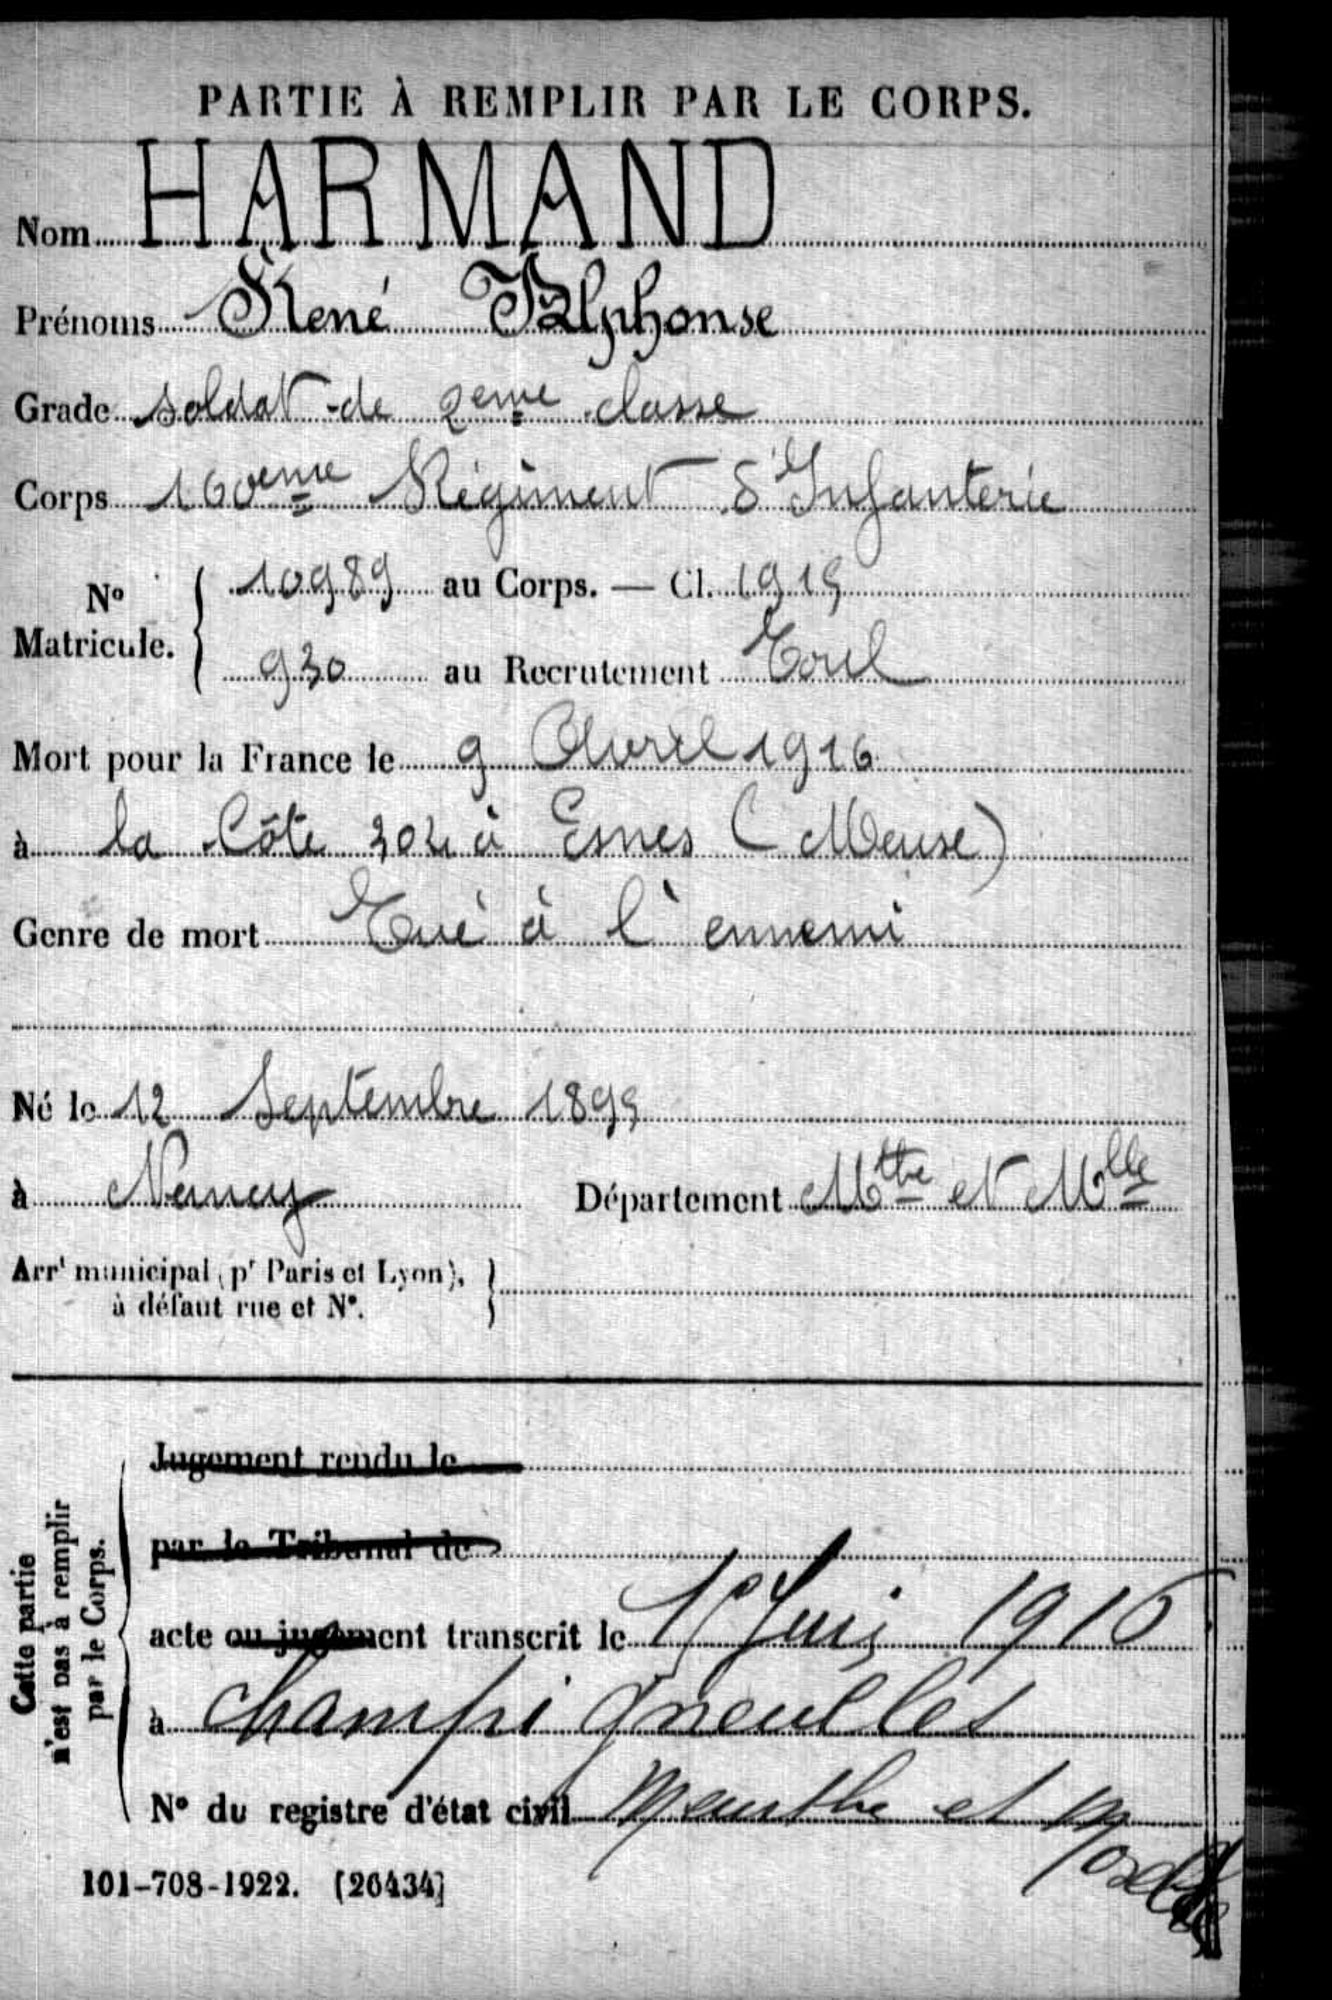 PARTIE À REMPLIR PAR LE CORPS.
Nom HARMAND
Prénoms René Alphonse
Grade soldat de 2eme classe
Corps 160eme Régiment d'Infanterie
N° Matricule. 10989 au Corps. — Cl. 1915
930 au Recrutement Toul
Mort pour la France le 9 Avril 1916
à la Côte 304 à Esnes (Meuse)
Genre de mort Tué à l'ennemi
Né le 12 Septembre 1895
à Nancy Département Mthe et Mlle
Arrt municipal (pr Paris et Lyon),
à défaut rue et N°.
Cette partie
n'est pas à remplir
par le Corps.
Jugement rendu le
par le Tribunal de
acte ou jugement transcrit le Juin 1916
à Champigneulles
N° du registre d'état civil Meurthe et Moselle
101-708-1922. [26434]